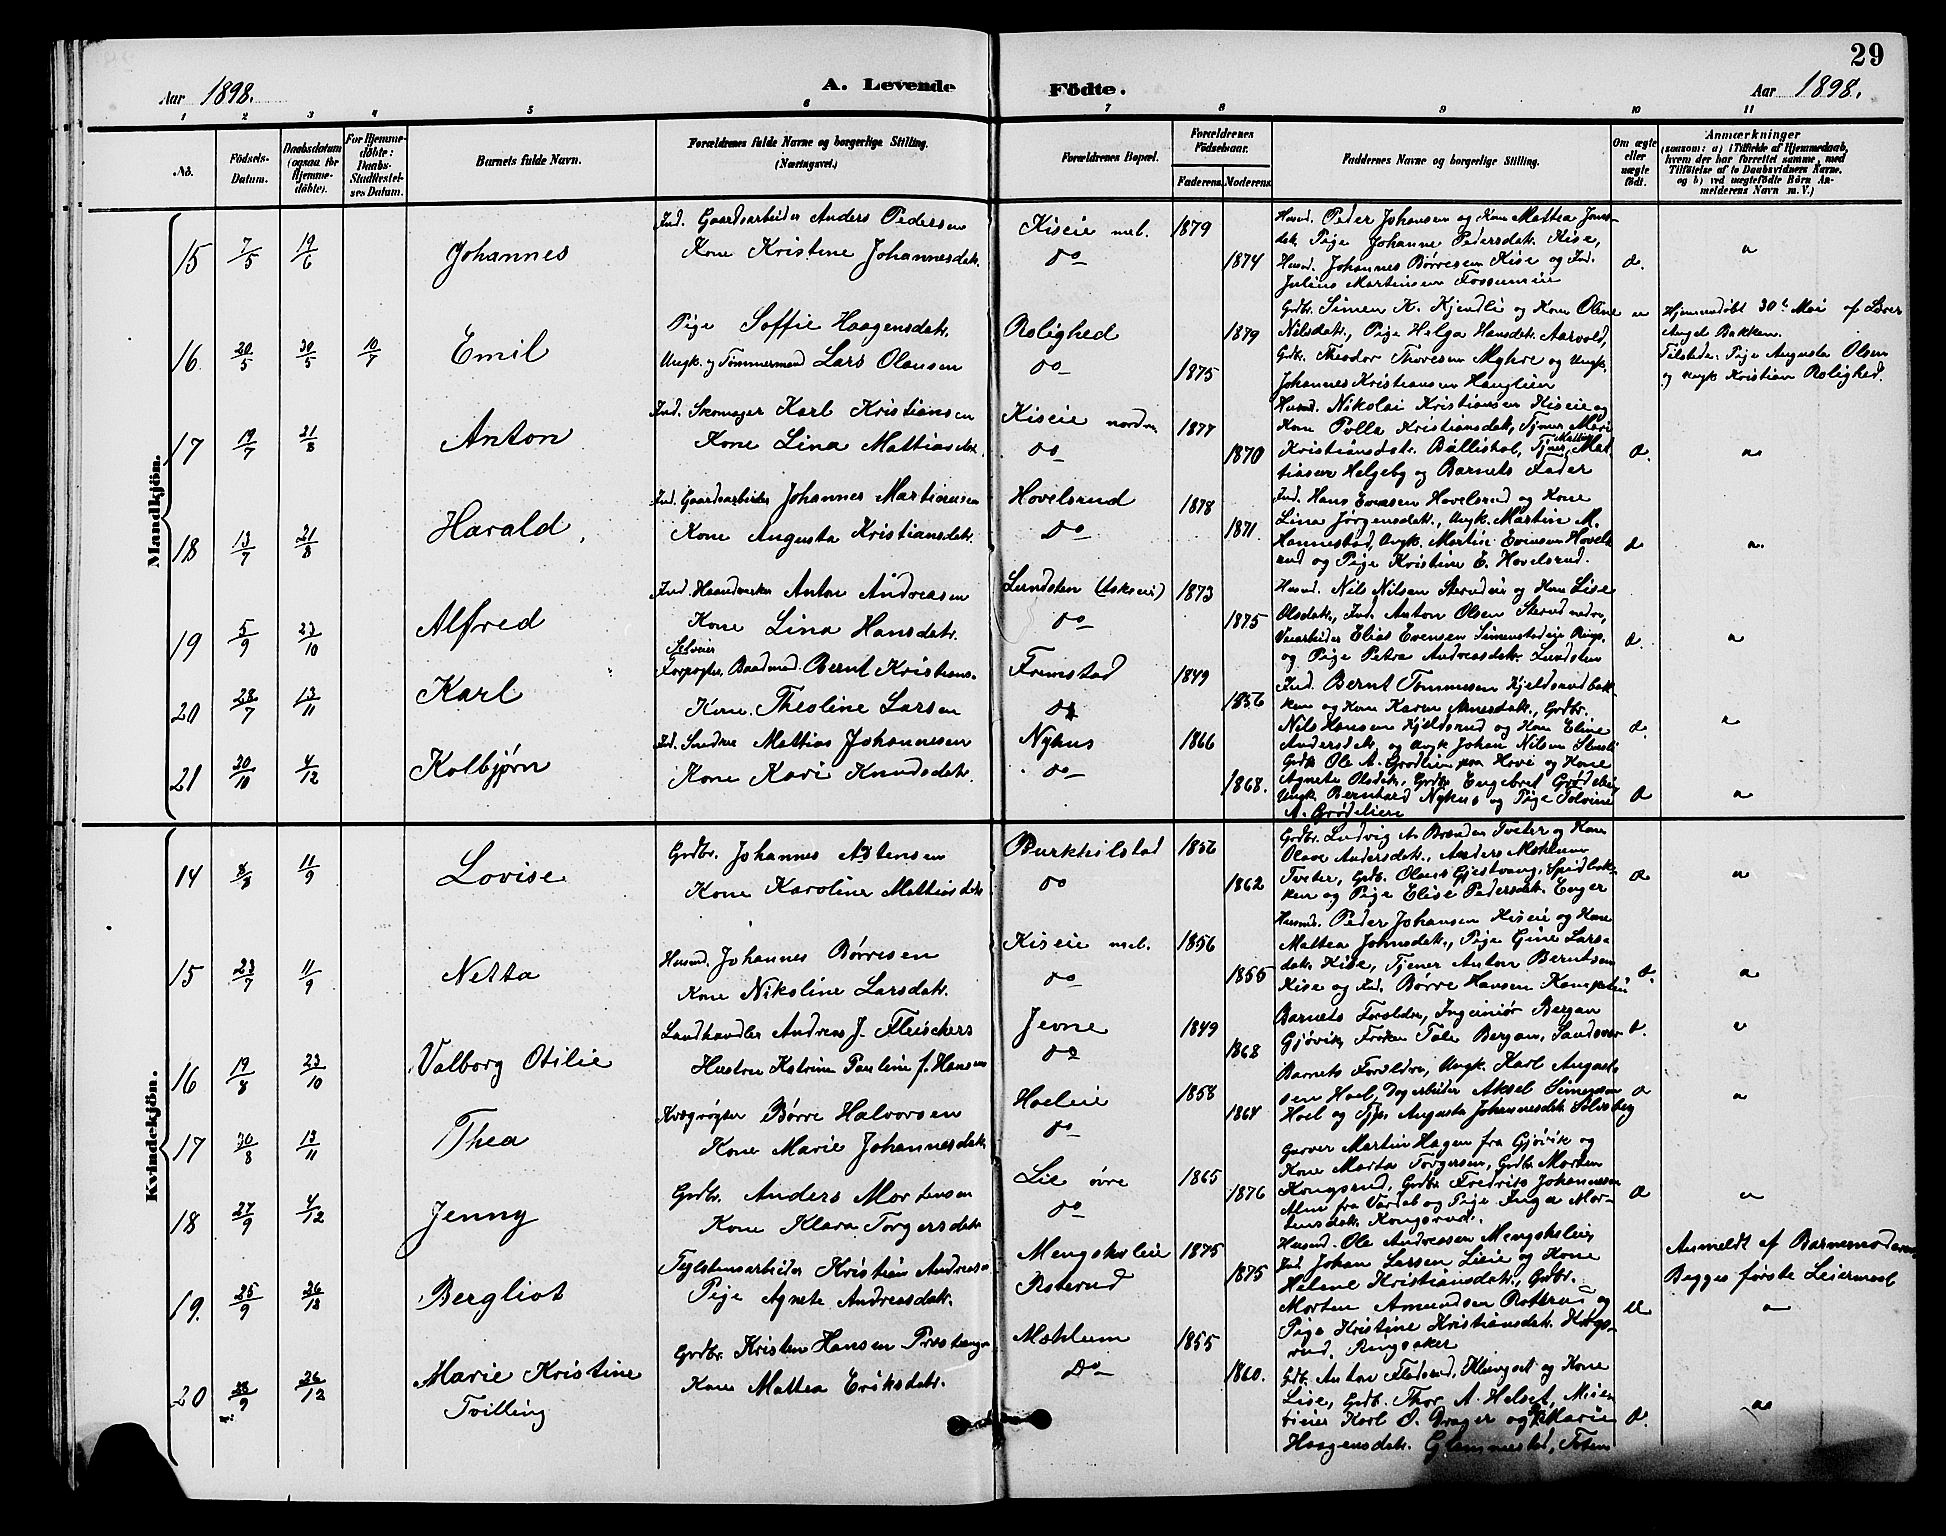 29
Aar 1898.
A. Levende
Födte.
Aar 1898.
1 2 3 4 5 6 7 8 9 10 11
No.
Födsels-Datum.
Daabsdatum (ogsaa for Hjemme-döbte).
For Hjemme-döbte: Daabs-Stadfæstel-ses Datum.
Barnets fulde Navn.
Forældrenes fulde Navne og borgerlige Stilling. (Næringsvei.)
Forældrenes Bopæl.
Forældrenes Födselsaar.
Faderens. Moderens.
Faddernes Navne og borgerlige Stilling.
Om ægte eller uægte födt.
Anmærkninger
(saasom: a) i Tilfælde af Hjemmedaab, hvem der har forrettet samme, med Tilföielse af to Daabsvidners Navne, og b) ved uægtefödte Börn Anmelderens Navn m. V.)
Mandkjön.
15 7/5 19/6 Johannes
Ind. Gaardsarbeider Anders Pedersen
Kone Kristine Johannesdatr.
Kiseie mel. 1879
do 1874
Husmd. Peder Johansen og Kone Mattea Jons-
datr. Pige Johanne Pedersdatr. Kise,
Husmd. Johannes Børresen Kise og Ind.
Julius Martinsen Fossumeie
16 20/5 30/5 10/7 Emil
Pige Soffie Haagensdatr.
Ungk. og Tømmermand Lars Olausen
Rolighed 1879
do 1875
Grdbr. Simen K. Kjendli og Kone Oline
Nilsdatr., Pige Helga Hansdatr. Aarvold,
Grdbr. Theodor Thoresen Myhre og Ungk.
Johannes Kristiansen Hauglien
Hjemmedøbt 30te Mai af Lærer
Angel Bakken.
Tilstede: Pige Augusta Olsen
og Ungk Kristian Rolighed.
17 19/7 21/8 Anton
Ind. Skomager Karl Kristiansen
Kone Lina Mattiasdatr.
Kiseie nordre 1877
do 1870
Husmd. Nikolai Kristiansen Kiseie og
Kone Polla Kristiansdatr, Tjener Mari
Kristiansdatr. Ballishol, Tjener Mattias Mat-
tiasen Helgeby og Barnets Fader
18 13/7 21/8 Harald.
Ind. Gaardsarbeider Johannes Martinusen
Kone Augusta Kristiansdatr.
Hovelsrud 1878
Do 1871
Ind. Hans Evensen Hovelsrud og Kone
Lina Jørgensdatr., Ungk. Martin M.
Hannestad, Ungk. Martin Evensen Hovels-
rud og Pige Kristine E. Hovelsrud.
19 5/9 23/10 Alfred
Ind. Haandværker Anton Andreasen
Kone Lina Hansdatr.
Lundsten (Askeie) 1873
do 1875
Husmd. Nils Nilsen Sterudeie og Kone Lise
Olsdatr., Ind. Anton Olsen Sterud nedre,
Veiarbeider Elias Evensen Simenstadeie Rings.
og Pige Petra Andreasdatr. Lundsten
20 28/7 13/11 Karl
Selveier
Forpagter, Baadmd. Bernt Kristians.
Kone Theoline Larsen
Fremstad 1849
do 1856
Ind. Bernt Tommesen Kjeldsrudbak-
ken og Kone Karen Arnesdatr., Grdbr.
Nils Hansen Kjeldsrud og Kone Eline
Andersdatr. og Ungk Johan Nilsen
21 20/10 4/12 Kolbjørn
Ind. Snedker Mattias Johannesen
Kone Kari Knudsdatr.
Nyhus 1866
do 1868.
Grdbr Ole A. Grødlien paa Hovi og Kone
Agnete Olsdatr, Grdbr. Engebret Grødlien,
Ungk. Bernhard Nyhus og Pige Tolvine
A. Grødlien
Kvindekjön.
14 4/8 11/9 Lovise
Grdbr. Johannes Astensen
Kone Karoline Mattiasdatr.
Burkhilstad 1856
do 1862
Grdbr. Ludvig A. Brænden Tveter og Kone
Olave Andersdatr., Anders Mæhlum
Tveter, Grdbr. Olaus Gjestvang, Spidsbak-
ken og Pige Elise Pedersdatr. Enger
15 23/7 11/9 Netta
Husmd. Johannes Børresen
Kone Nikoline Larsdatr.
Kiseie mel. 1856
do 1855
Husmd. Peder Johansen Kiseie og Kone
Mattea Johnsdatr., Pige Gine Lars-
datr. Kise, Tjener Anton Berntsen
Kise og Ind. Børre Hansen
16 19/8 23/10 Valborg Otilie
Landhandler Andreas J. Fleischers
Hustru Katrine Pauline f. Hansen
Jevne 1849
do 1868
Barnets Forældre, Ingeniør Bergan
Gjøvik, Frøken Tale Bergan,
17 30/8 13/11 Thea
Kvægrøgter Børre Halvorsen
Kone Marie Johannesdatr.
Hoeleie 1858
do 1864
Barnets Forældre, Ungk. Karl August-
sen Hoel, Dagarbeider Aksel Simensen
Hoel og Tjp. Augusta Johannesdatr. Solberg
18 27/9 4/12 Jenny
Grdbr. Anders Mortensen
Kone Klara Torgersdatr.
Lie øvre 1865
do 1876
Garver Martin Hagen fra Gjøvik og
Kone Marta Torgersen, Grdbr. Morten
Kongsrud, Grdbr. Fredrik Johannesen
Alm fra Vardal og Pige Inga Mor-
tensdatr. Kongsrud.
19. 25/9 26/12 Bergliot
Teglstensarbeider Kristian Andreas.
Pige Agnete Andreasdatr.
Mengsholeie 1875
Roterud 1875
Husmd. Ole Andreassen Mengsholeie,
Ind Johan Larsen Lieie og Kone
Helene Kristiansdatr., Grdbr.
Morten Amundsen Roterud og
Pige Kristine Kristiansdatr.
Ringsaker
Anmeldt af Barnemoderen
Begges første Leiermaal
20 28/9 26/12 Marie Kristine
Tvilling
Grdbr. Kristen Hansen
Kone Mattea Eriksdatr.
Mæhlum 1855
Do 1860.
Grdb. Anton Klungset og Kone
Lise, Grdb. Thor A. Helset,
Karl O. Drager og Marie
Haagensdatr. Glemmestad, Toten